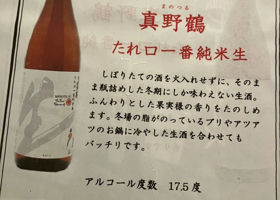 まのつる
真野鶴
たれ口一番純米生
しぼりたての酒を火入れせずに、そのま
ま瓶詰めした冬期にしか味わえない生酒。
ふんわりとした果実様の香りをたのしめ
ます。冬場の脂がのっているブリやアツア
ツのお鍋に冷やした生酒を合わせても
バッチリです。
アルコール度数 17.5 度
生